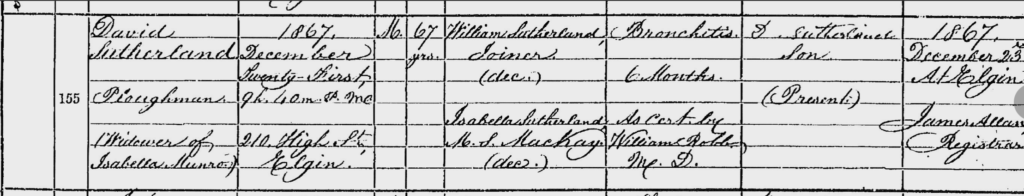 155
David
Sutherland
Ploughman
(Widower of
Isabella Munro)
1867,
December
Twenty-First,
9h. 40m. P.M.
210. High St.,
Elgin.
M.
67
yrs.
William Sutherland,
Joiner
(dec.)
Isabella Sutherland,
M. S. Mackay.
(dec.)
Bronchitis.
6 Months.
As Cert. by
William
M. D.
D. Sutherland
Son.
(Present)
1867.
December 23rd
At Elgin
James Allan
Registrar